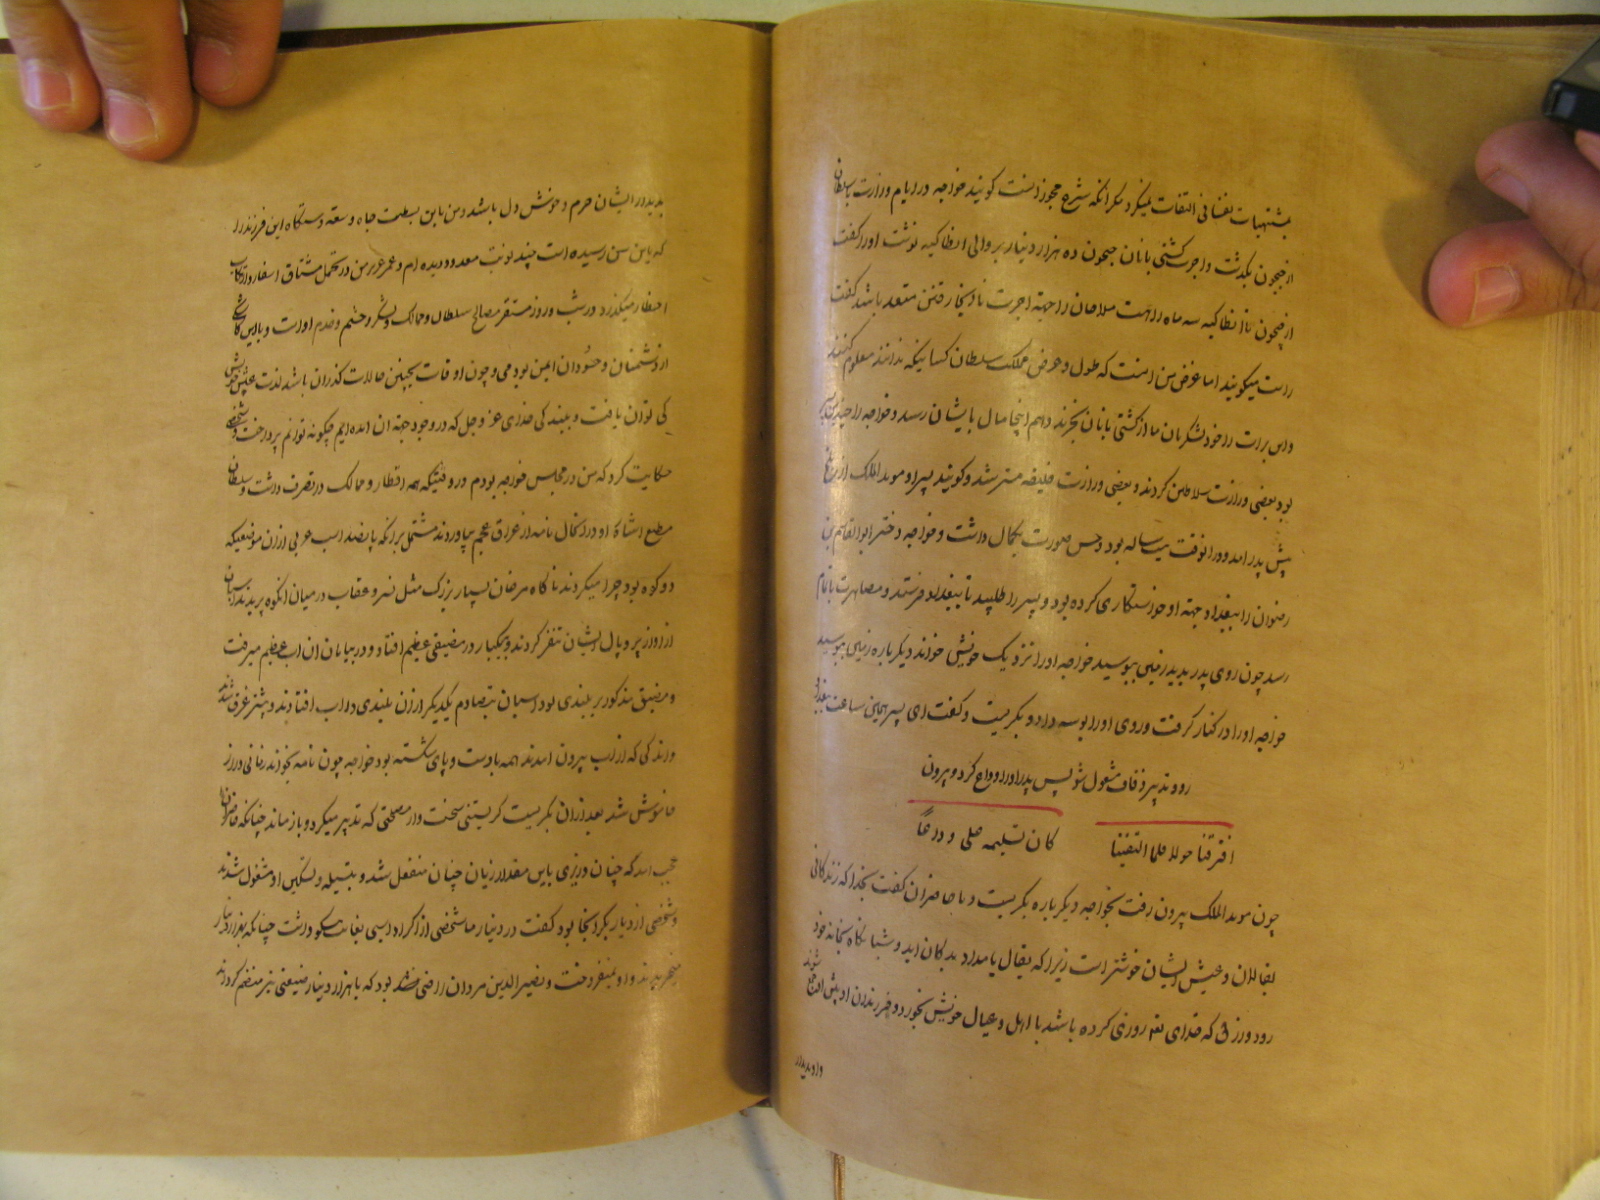 بمشتهیات نفسانی التفات نمیکرد مکر انکه شرع مجوز دانست کویند خواجه در ایام وزارت با سلطان
از جیحون بکذشت و اجرت کشتی بانان جیحون ده هزار دینار بر والی انطاکیه نوشت او را کفت
از جیحون تا انطاکیه سه ماه راهست ملاحان را جهة اجرت تا انجا رفتن متعذر باشد کفت
راست میکویند اما غرض من انست که طول و عرض مملکت سلطان کسانیکه ندانند معلوم کنند
و این برات را خود لشکریان ما از کشتی بانان بخرند و هم اینجا مال بایشان رسد و خواجه را چند پسر
بود بعضی وزارت سلاطین کردند و بعضی وزارت خلیفه مسترشد و کویند پسر او موید الملک از
پیش پدر امد و در انوقت بیست ساله بود و حسن صورت بکمال داشت و خواجه دختر ابو القاسم بن
رضوان را ببغداد جهة او خواستکاری کرده بود و پسر را طلبید تا ببغداد فرستد و مصاهرت باتمام
رسد چون روی پدر بدید زمین ببوسید خواجه او را نزدیک خویش خواند دیکر باره زمین ببوسید
خواجه او را در کنار کرفت و روی او را بوسه داد و بکریست و کفت ای پسر همین ساعت ببغداد
رو و تدبیر زفاف مشغول شو پس پدر او را وداع کرد و بیرون
افترقنا حولا فلما التقینا کان تسلیمه علی وداعا
چون موید الملک بیرون رفت خواجه دیکر باره بکریست و با حاضران کفت بخدا که زندکانی
بقالان و عیش ایشان خوشتر است زیرا که بقال بامداد بدکان اید و شبانکاه بخانه خود
رود و رزقی که خدای تعالی روزی کرده باشد با اهل و عیال خویش بخورد و فرزندان او پیش او جمع شوند
و او بدیدار
بدیدار ایشان خرم و خوش دل باشد و من باین بسطت جاه و سعة دستکاه این فرزند را
که باین سن رسیده است چند نوبت معدود دیده ام و عمر عزیز من در تحمل مشاق اسفار و ارتکاب
اخطار میکذرد و شب و روز مستغرق مصالح سلطان و ممالک و لشکر و حشم و خدم اوست و با این کاشکی
از دشمنان و حسودان ایمن بودمی و چون اوقات بچنین حالات کذران باشد لذت عیش خویش
کی توان یافت و ببندکی خدای عز و جل که در وجود جهة ان امده ایم چکونه توانم پرداخت و شخصی
حکایت کرد که من در مجلس خواجه بودم در وقتیکه همه اقطار و ممالک در تصرف داشت و سلطان
مطیع اشارة او در انحال نامه از عراق عجم بیاوردند مشتمل بر انکه پانصد اسب عربی از ان موضعیکه
دو کوه بود چرا میکردند ناکاه مرغان بسیار بزرک مثل نسر و عقاب در میان انکوه پریدند اسبان
از اواز پر و بال ایشان تنفر کردند و بیکبار در مضیقی عظیم افتاد و در بیابان ان اب عظیم میرفت
و مضیق مذکور بر بلندی بود اسبان بتصادم یکدیکر از ان بلندی در اب افتادند و بیشتر غرق شدند
و اندکی که از اب بیرون امدند همه با دست و پای شکسته بود خواجه چون نامه بخواند زمانی دراز
خاموش شد بعد از ان بکریست کریستنی سخت و از مصلحتی که تدبیر میکرد باز ماند چنانکه حاضران
عجب امد که چنان وزیری باین مقدار زیان چنان منفعل شد و بتسلیه و تسکین او مشغول شدند
و شخصی از دیار بکر انجا بود کفت در دیار ما شخصی از اکراد اسبی بغایت نیکو داشت چنانکه بهزار دینار
میخریدند و او نمیفروخت و نصیر الدین مروان راضی شد بود که با هزار دینار ضیعتی نیز منضم کرداند